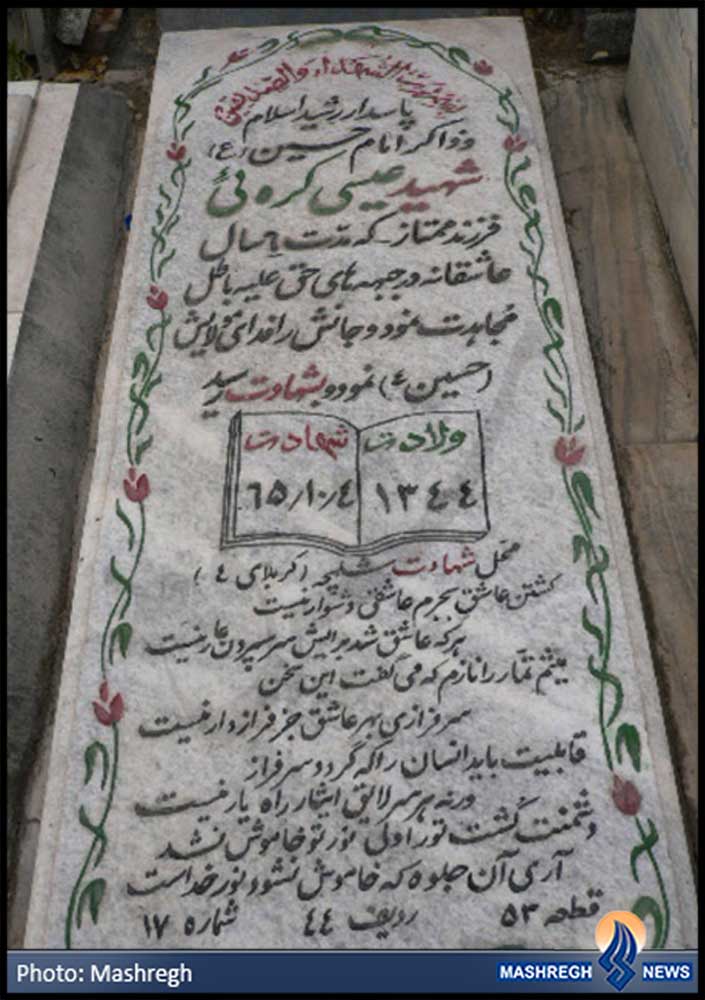 بسم رب الشهداء والصدیقین
پاسدار رشید اسلام
و ذاکر امام حسین (ع)
شهید عیسی کره ئی
فرزند ممتاز - که مدت ٦ سال
عاشقانه در جبهه های حق علیه باطل
مجاهدت نمود و جانش را فدای مولایش
(حسین ع) نمود و بشهادت رسید
ولادت شهادت
۱۳٤٤ ٦٥/۱۰/٤
محل شهادت شلمچه (کربلای ٤)
کشتن عاشق بجرم عاشقی دشوار نیست
هر که عاشق شد برایش سر سپردن عار نیست
میثم تمار را نازم که می گفت این سخن
سرفرازی بهر عاشق جز فراز دار نیست
قابلیت باید انسان را که گردد سرفراز
ورنه هر سر لایق ایثار راه یار نیست
دشمنت کشت تو را ولی نور تو خاموش نشد
آری آن جلوه که خاموش نشود نور خداست
قطعه ٥۳ ردیف ٤٤ شماره ۱۷
Photo: Mashregh
MASHREGH NEWS